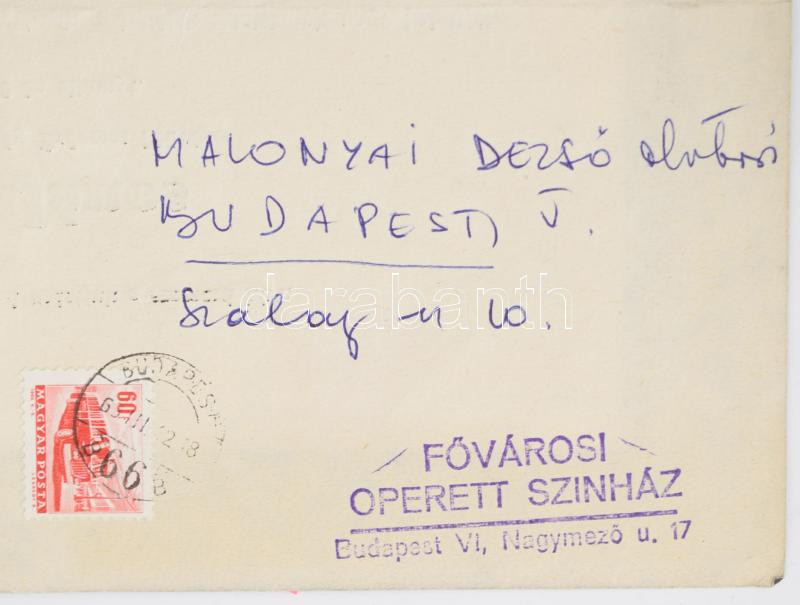 MALONYAI DEZSŐ elvtárs
BUDAPEST, V.
Szalay u 10.
darabanth
60
MAGYAR POSTA
BUDAPEST
66
B
FŐVÁROSI
OPERETT SZINHÁZ
Budapest VI, Nagymező u. 17